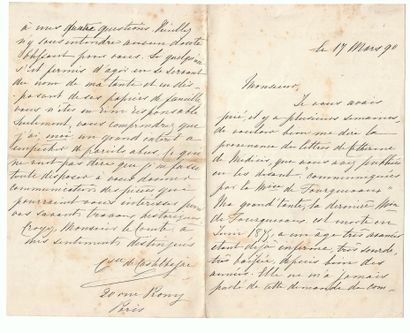 le 17 Mars 90
Monsieur,
Je vous avais
prié il y a plusieurs semaines,
de vouloir bien me dire la
provenance des lettres de Catherine
de Médicis, que vous avez publiées
en les disant communiquées
par la Mise de Fourquevaux
Ma grand'tante, la dernière Mise
de Fourquevaux est morte en
Juin 18 à un âge très avancé
étant déjà infirme, très sourde,
très depuis bien des
années. Elle ne m'a jamais
parlé de cette demande de com-
à mes quatre questions Veuillez
n'y sous entendre aucun doute
offensant pour vous. Si quelqu'un
s'est permis d'agir en se servant
du nom de ma tante et en dis-
posant de ses papiers de famille,
vous n'êtes en rien responsable
Seulement, vous comprendrez que
j'ai moi un grand intérêt
empêcher de pareils abus ce qui
ne veut pas dire que je ne sois
toute disposée à vous donner
communication des pièces qui
pourraient vous intéresser pour
vos savants travaux historiques
Croyez, Monsieur le Comte à
mes sentiments distingués
Csse de Castelbajac
20 rue
Paris